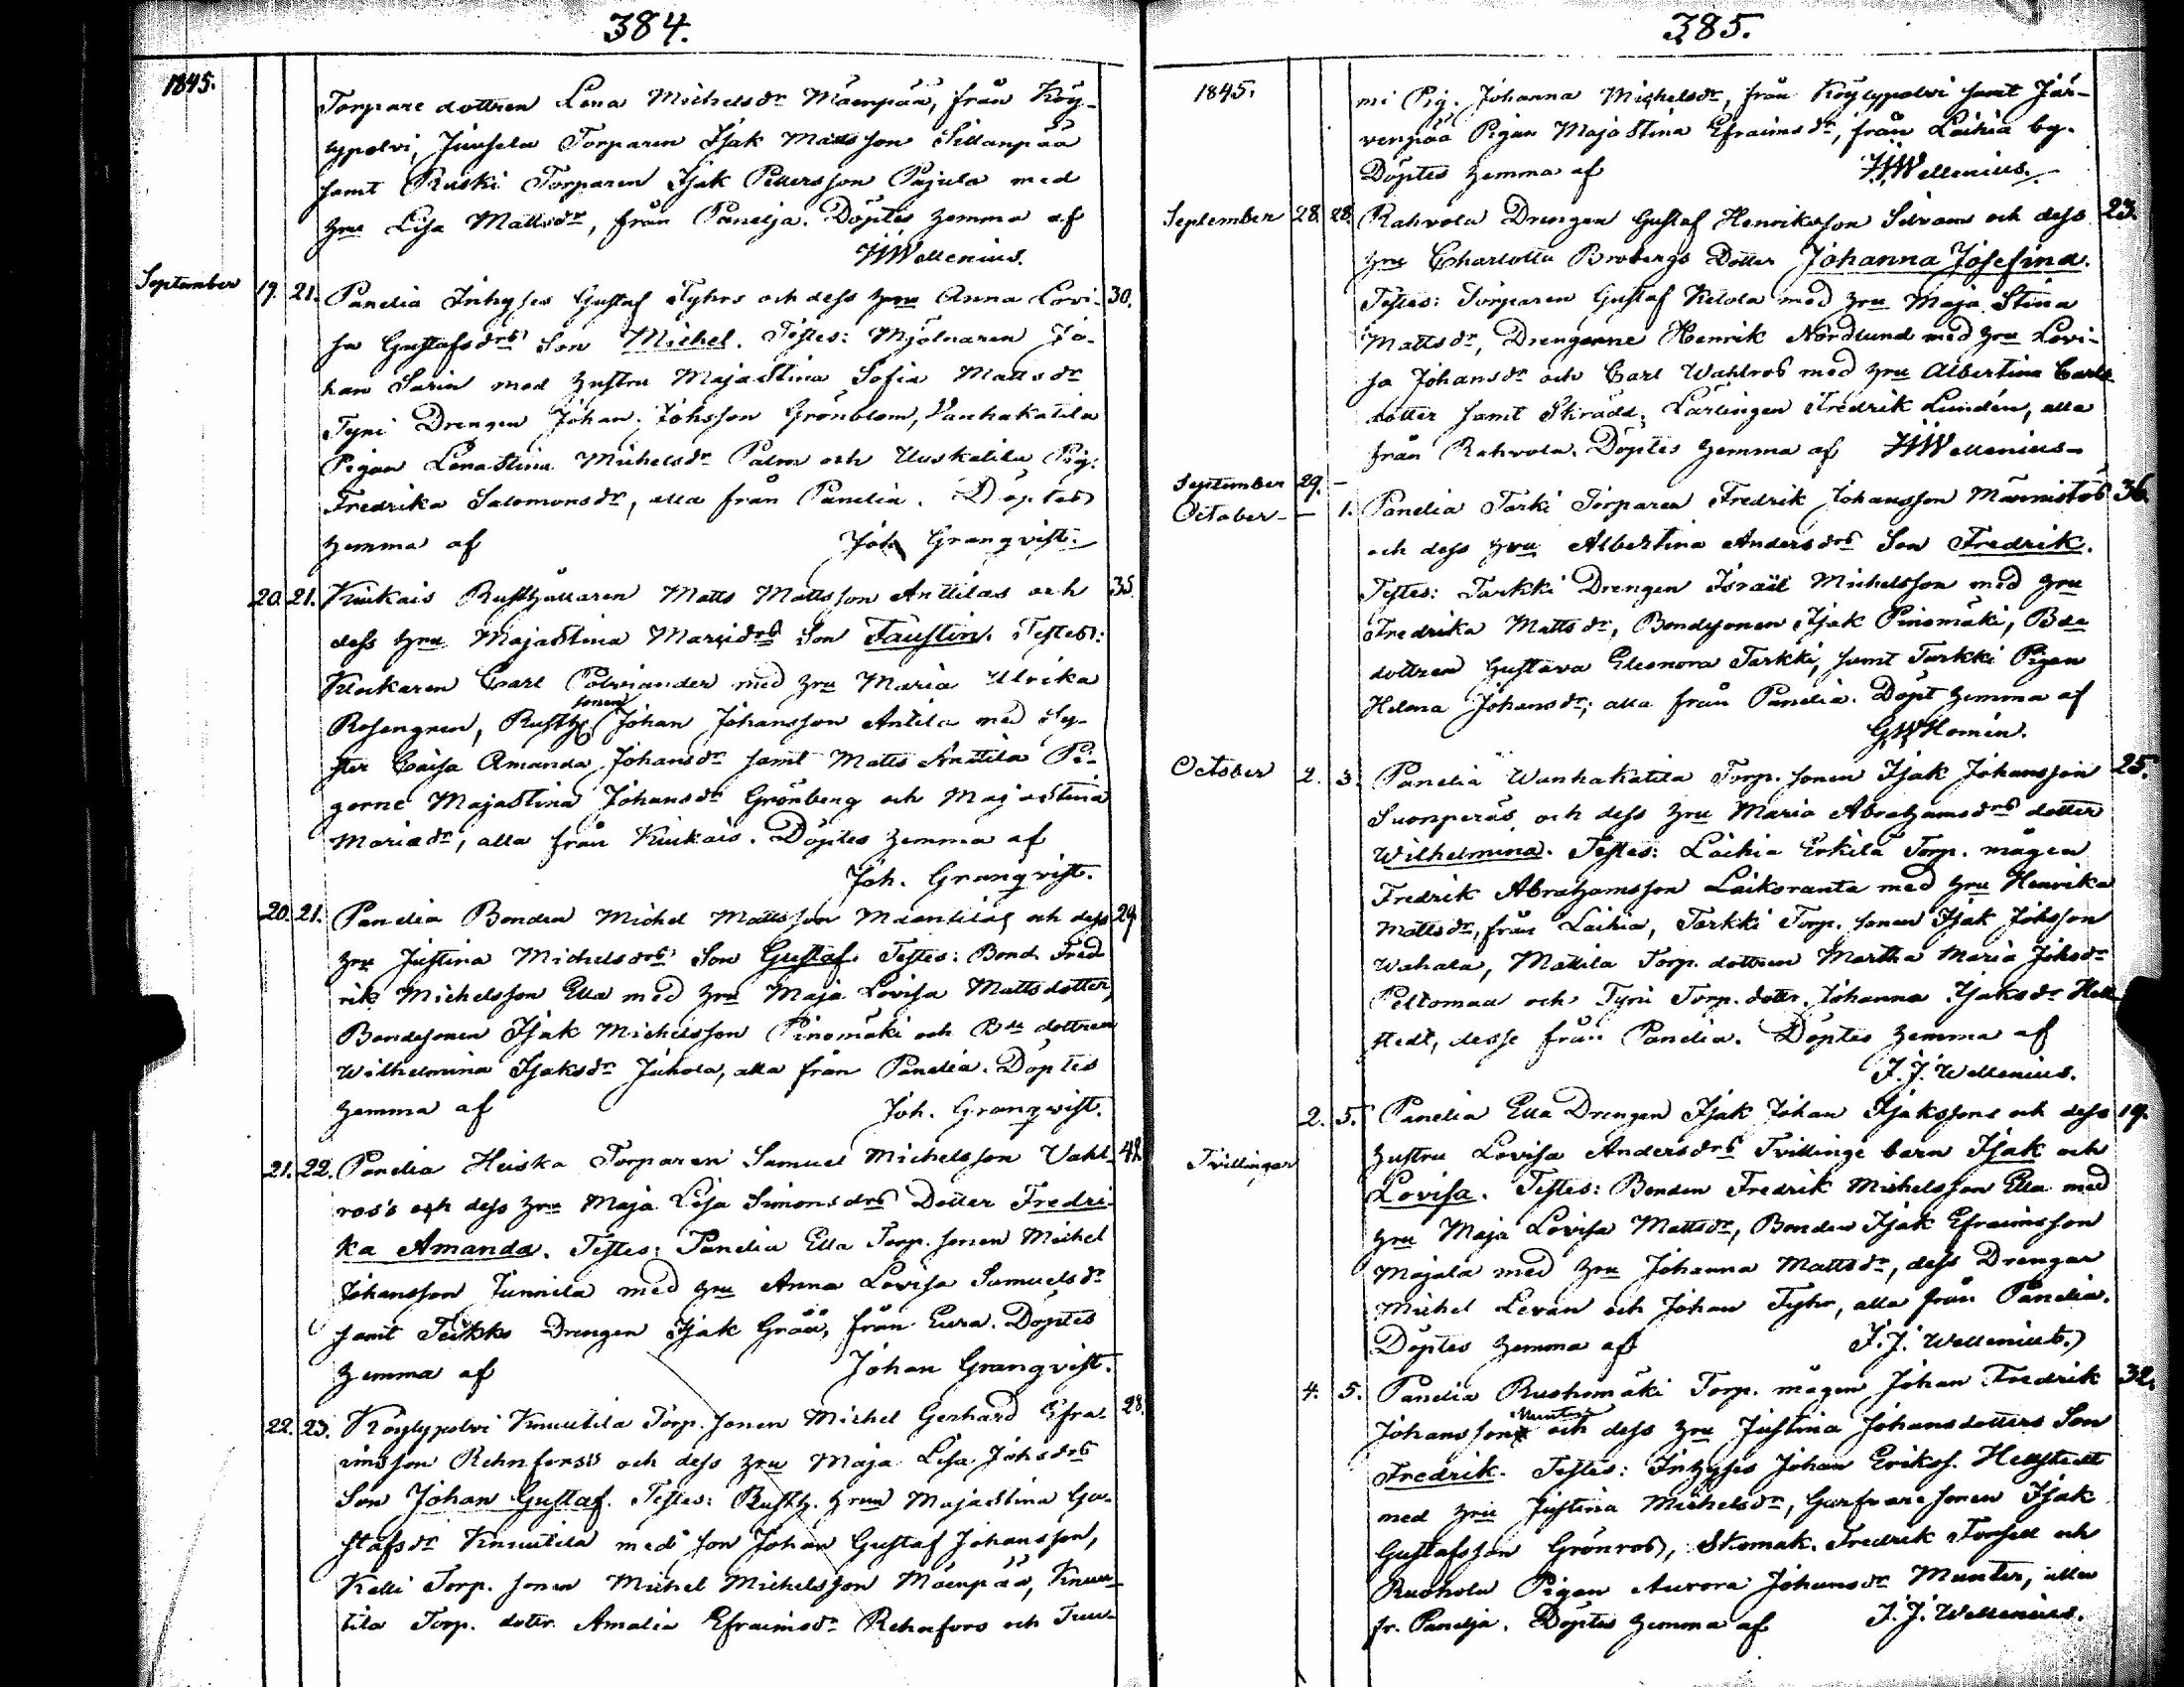 384.
1845.
Torpare dottren Lena Michelsdr Mäenpää, från Köy-
lypolvi, Juusela Torparen Isak Mattsson Sillanpää
samt Ruski Torparen Isak Pettersson Pajula med
hru Lisa Mattsdr, från Panelja. Döptes hemma af
Wellenius.
September 19. 21. Panelia Inhyses Gustaf Tyhrs och dess hru Anna Lovi- 30.
sa Gustafsdrs Son Michel. Testes: Mjölnaren Jo-
han Sarin med hustru Maja Stina Sofia Mattsdr
Tyni Drengen Johan Johsson Grönblom, Vanhakatila
Pigan Lena Stina Michelsdr Palm och Uuskatila Pig:
Fredrika Salomonsdr, alla från Panelia. Döptes
hemma af Joh Granqvist.
20. 21. Kiukais Rusthållaren Matts Mattsson Anttilas och 35.
dess hru Maja Stina Mariædrs Son Faustin. Testes:
Klockaren Carl Polviander med hru Maria Ulrika
Rosengren, Rusth. sonen Johan Johansson Antila med Sy-
ster Caisa Amanda Johansdr samt Matts Anttila Pi-
gorne Maja Stina Johansdr Grönberg och Maja Stina
Mariædr, alla från Kiukais. Döptes hemma af
Joh. Granqvist.
20. 21. Panelia Bonden Michel Mattsson Mäentilas och dess 29.
hru Justina Michelsdrs Son Gustaf. Testes: Bond. Fred
rik Michelsson Ella med hru Maja Lovisa Mattsdotter,
Bondesonen Isak Michelsson Pinomäki och Bde dottren
Wilhelmina Isaksdr Juhola, alla från Panelia. Döptes
hemma af Joh. Granqvist.
21. 22. Panelia Heiska Torparen Samuel Michelsson Vahl- 42
ros's och dess hru Maja Lisa Simonsdrs Dotter Fredri-
ka Amanda. Testes: Panelia Ella Torp. sonen Michel
Johansson Junnila med hru Anna Lovisa Samuelsdr
samt Teikko Drengen Isak Grää, från Eura. Döptes
hemma af Johan Granqvist.
22. 23. Köylypolvi Knuutila Torp. sonen Michel Gerhard Efra- 28.
imsson Rehnfors's och dess hru Maja Lisa Johsdrs
Son Johan Gustaf. Testes: Rusth. hrun Maja Stina Gu-
stafsdr Knuutila med son Johan Gustaf Johansson,
Kelli Torp. sonen Michel Michelsson Mäenpää, Knuu-
tila Torp. dottr. Amalia Efraimsdr Rehnfors och Tuu-
385.
1845.
mi Pig. Johanna Michelsdr, från Köylypolvi samt Jär-
venpää Pigan Maja Stina Efraimsdr, från Laihia by.
Döptes hemma af Wellenius.
September 28. 28. Rahvola Drengen Gustaf Henriksson Silvans och dess 23.
hru Charlotta Brobergs Dotter Johanna Josefina.
Testes: Torparen Gustaf Ketola med hru Maja Stina
Mattsdr, Drengarne Henrik Nordlund med hru Lovi-
sa Johansdr och Carl Wahlros med hru Albertina Carls
dotter samt Skrädd. Lärlingen Fredrik Lundén, alla
från Rahvola. Döptes hemma af Wellenius
September 29. -
October - - 1. Panelia Tarki Torparen Fredrik Johansson Männistös 36.
och dess hru Albertina Andersdrs Son Fredrik.
Testes: Tarkki Drengen Israël Michelsson med hru
Fredrika Mattsdr, Bondsonen Isak Pinomäki, Bde
dottren Gustava Eleonora Tarkki, samt Tarkki Pigan
Helena Johansdr; alla från Panelia. Döpt hemma af
GWHomén.
October 2. 3. Panelia Wanhakatila Torp. sonen Isak Johansson 25.
Suonperäs och dess hru Maria Abrahamsdrs dotter
Wilhelmina. Testes: Laihia Erkilä Torp. mågen
Fredrik Abrahamsson Laikoranta med hru Henrika
Mattsdr, från Laihia, Tarkki Torp. sonen Isak Johsson
Wahala, Mattila Torp. dottren Martha Maria Johsdr
Peltomaa och Tyni Torp. dottr. Johanna Isaksdr Hell
stedt, desse från Panelia. Döptes hemma af
F. J. Wellenius.
2. 5. Panelia Ella Drengen Isak Johan Isakssons och dess 19.
Tvillingar
hustru Lovisa Andersdrs Tvillinge barn Isak och
Lovisa. Testes: Bonden Fredrik Michelsson Ella med
hru Maja Lovisa Mattsdr, Bonden Isak Efraimsson
Majala med hru Johanna Mattsdr, dess Drengar
Michel Levan och Johan Tyhr, alla från Panelia.
Döptes hemma af F. J. Wellenius.
4. 5. Panelia Ruohomäki Torp. mågen Johan Fredrik 32.
Johansson Munters och dess hru Justina Johansdotters Son
Fredrik. Testes: Inhyses Johan Erikss. Hellstedt
med hru Justina Michelsdr, Garfvare sonen Isak
Gustafsson Grönros, Skomak. Fredrik Torsell och
Ruohola Pigan Aurora Johansdr Munter, alla
fr. Panelja. Döptes hemma af F. J. Wellenius.